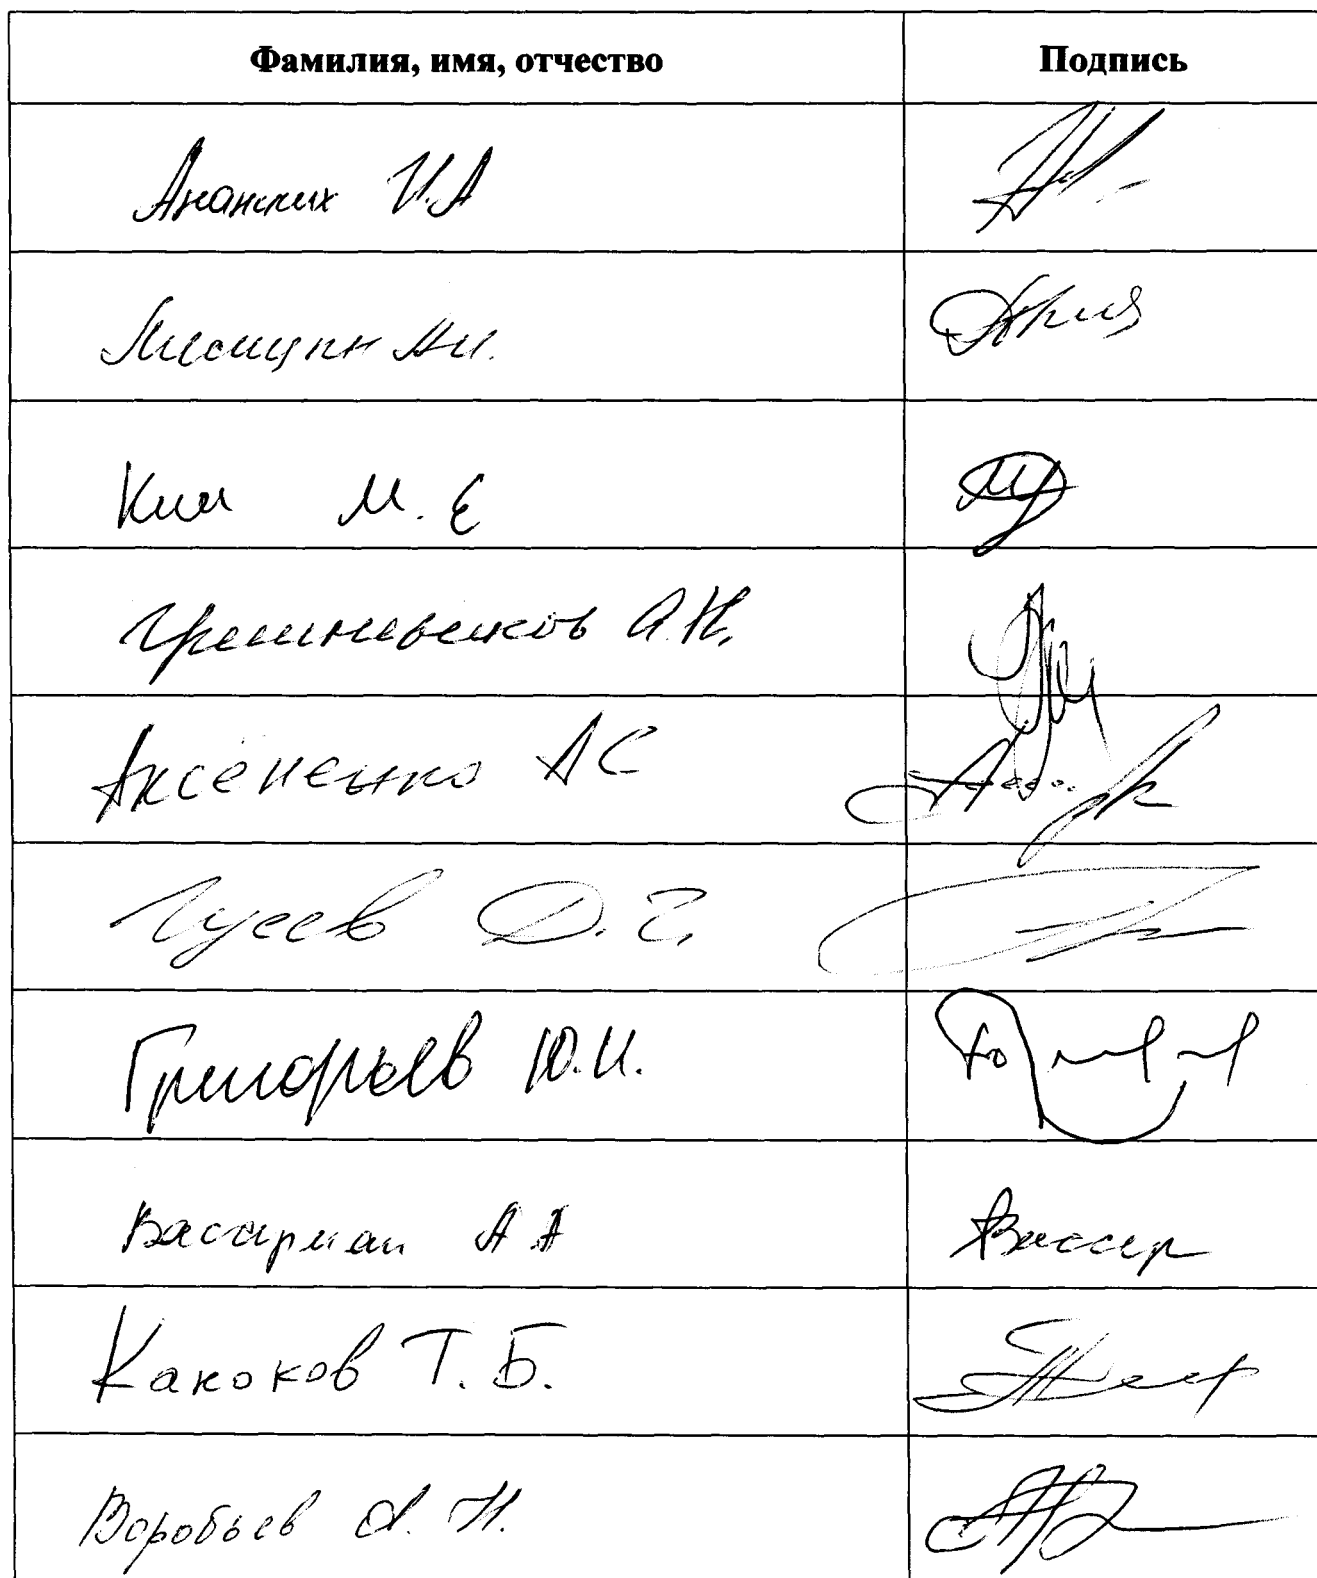 Фамилия, имя, отчество Подпись
Ананских И.А
Лисицын А.И.
Ким М.Е
Грешневиков А.Н.
Аксёненко А С
Гусев Д.Г.
Григорьев Ю.И.
Вассерман А А
Канокoв Т.Б.
Воробьев А.Н.